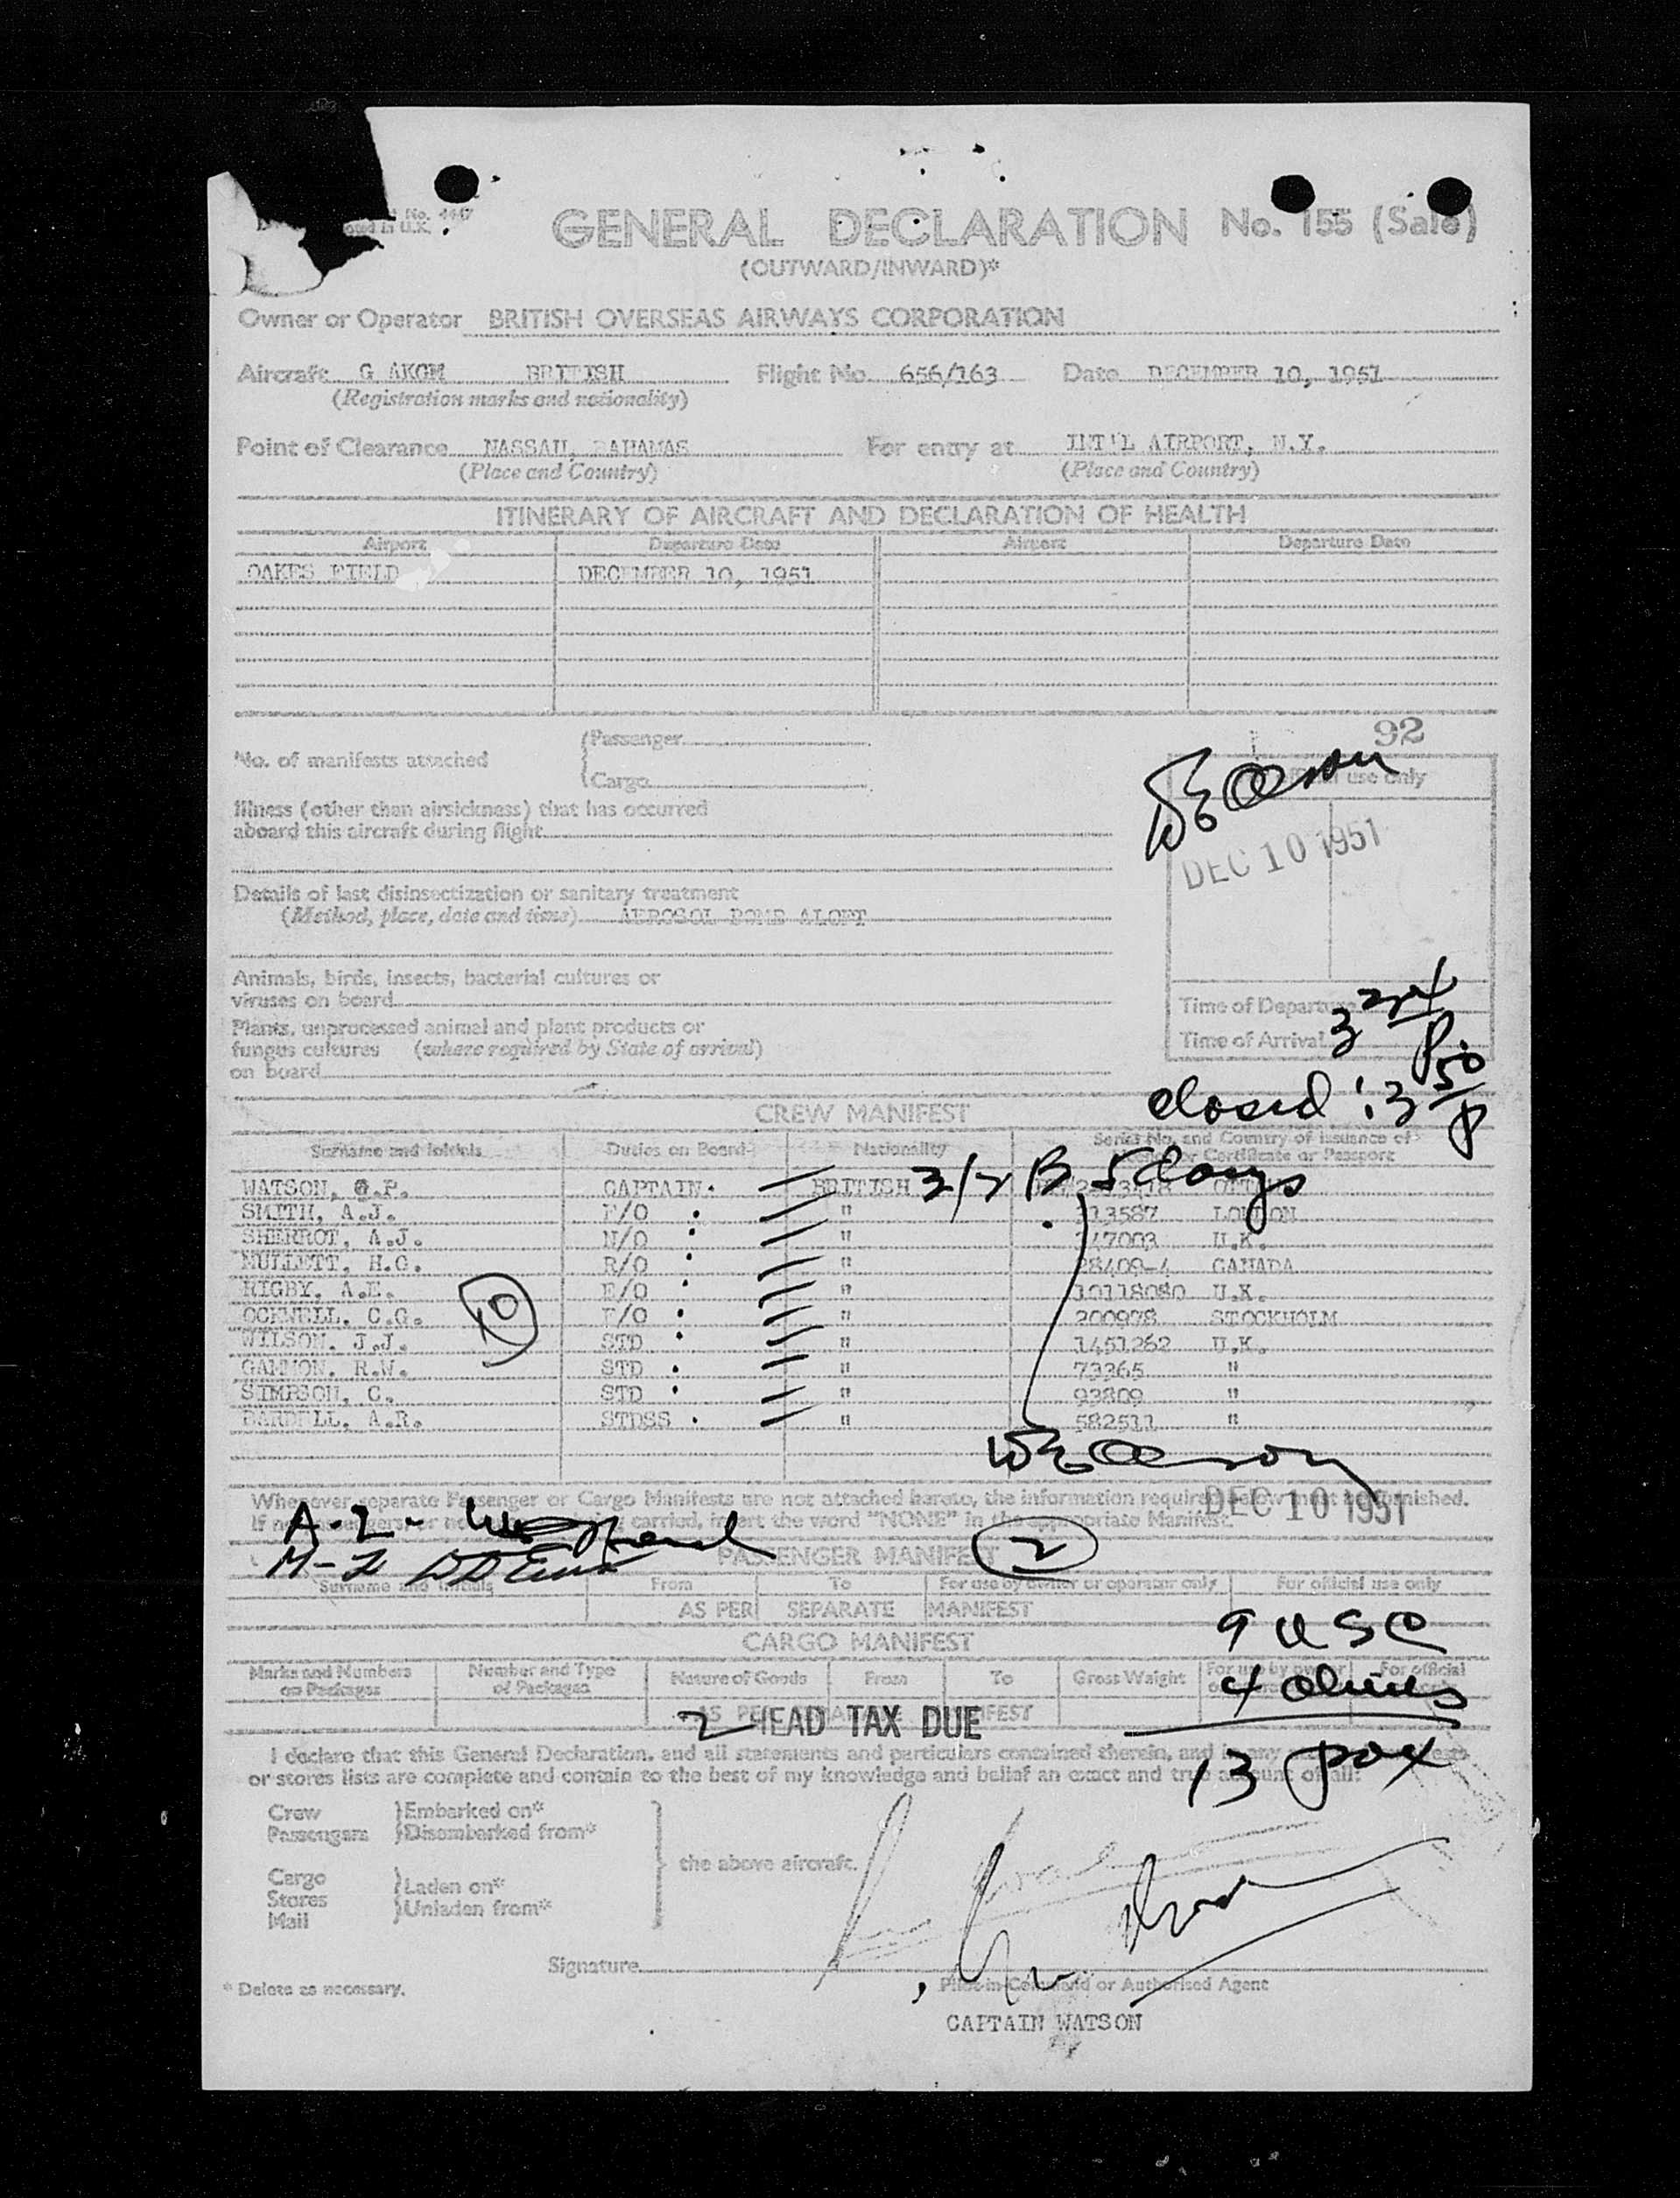 No. 4447
GENERAL DECLARATION No. 155 (Sale)
(OUTWARD/INWARD)*
Owner or Operator BRITISH OVERSEAS AIRWAYS CORPORATION
Aircraft G AKGM BRITISH Flight No. 656/163 Date DECEMBER 10, 1951
(Registration marks and nationality)
Point of Clearance NASSAU, BAHAMAS For entry at INT'L AIRPORT, N.Y.
(Place and Country) (Place and Country)
ITINERARY OF AIRCRAFT AND DECLARATION OF HEALTH
Airport Departure Date Airport Departure Date
OAKES FIELD DECEMBER 10, 1951
92
No. of manifests attached (Passenger
(Cargo
use only
Illness (other than airsickness) that has occurred
aboard this aircraft during flight
DEC 10 1951
Details of last disinsectization or sanitary treatment
(Method, place, date and time) AEROSOL BOMB ALOFT
Animals, birds, insects, bacterial cultures or
viruses on board
Time of Departure
Plants, unprocessed animal and plant products or
fungus cultures (where required by State of arrival)
on board
Time of Arrival 3 24 P
closed: 3 50 P
CREW MANIFEST
Surname and Initials Duties on Board Nationality Serial No. and Country of issuance of
Certificate or Passport
WATSON, G.P. CAPTAIN BRITISH 3/2 B, 5 days
SMITH, A.J. F/O " 113587 LONDON
SHERROT, A.J. N/O " 47003 U.K.
MULLETT, H.G. R/O " 28409-4 CANADA
RIGBY, A.E. E/O " 10118080 U.K.
OCKWELL, C.G. F/O " 200978 STOCKHOLM
10
WILSON, J.J. STD " 1451262 U.K.
GAMMON, R.W. STD " 73365 "
SIMPSON, C. STD " 93809 "
BARDELL, A.R. STDSS " 582511 "
Whenever separate Passenger or Cargo Manifests are not attached hereto, the information required below must be furnished.
If no passengers or no carried, insert the word "NONE" in the appropriate Manifest.
DEC 10 1951
A-2-
M-2
PASSENGER MANIFEST 2
Surname and Initials From To For use by owner or operator only For official use only
AS PER SEPARATE MANIFEST
9 USC
CARGO MANIFEST
Marks and Numbers on Packages Number and Type of Packages Nature of Goods From To Gross Weight For use by owner For official
4 aliens
AS PER MANIFEST
2 HEAD TAX DUE
13 pax
I declare that this General Declaration, and all statements and particulars contained therein, and in any
or stores lists are complete and contain to the best of my knowledge and belief an exact and true account of all:
Crew }Embarked on*
Passengers }Disembarked from*
the above aircraft.
Cargo }Laden on*
Stores }Unladen from*
Mail
Signature
* Delete as necessary. Pilot-in-Command or Authorised Agent
CAPTAIN WATSON